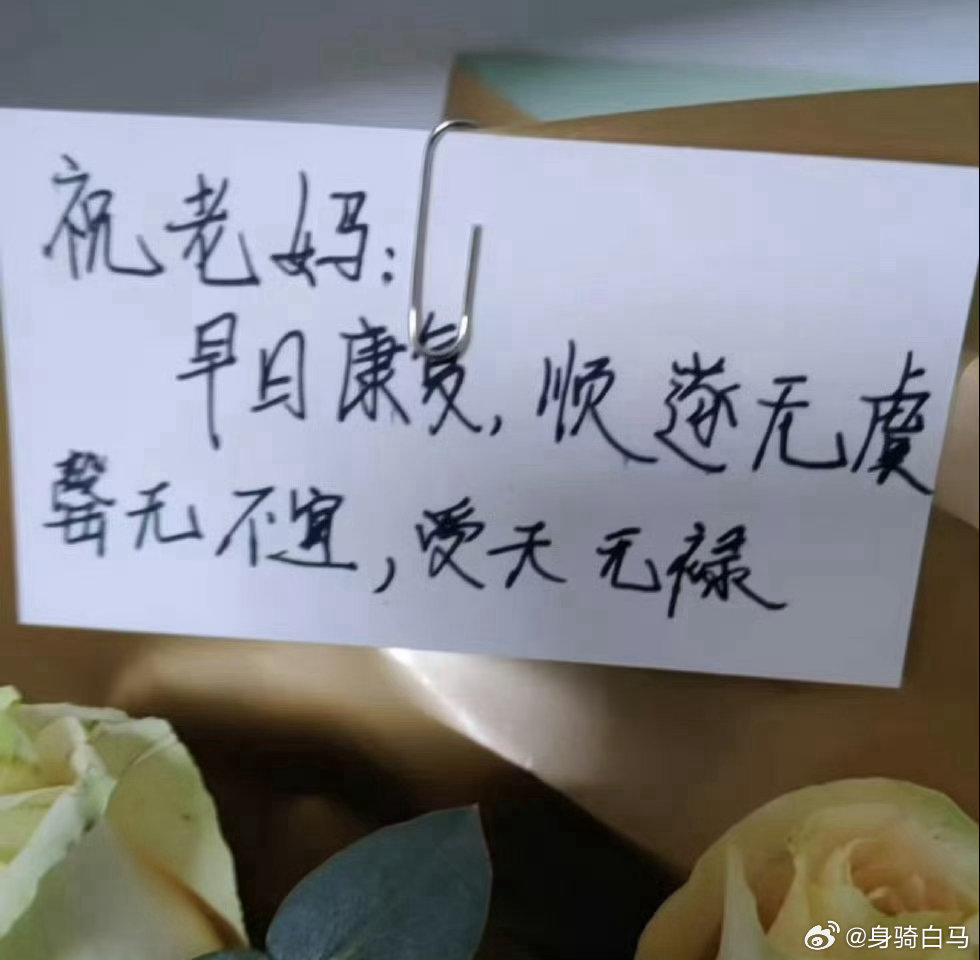 祝老妈:
早日康复,顺遂无虞
罄无不宜,受天无禄
@身骑白马